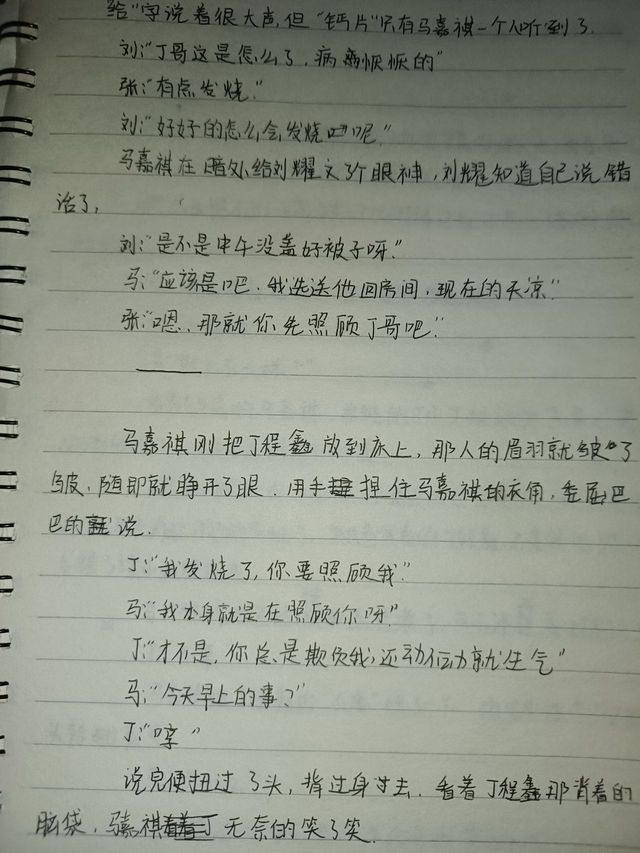 给"字说着很大声,但"钙片"只有马嘉祺一个人听到了.
刘:"丁哥这是怎么了,病恹恹的"
张:"有点发烧."
刘:"好好的怎么会发烧呢."
马嘉祺在暗处给刘耀文了个眼神,刘耀知道自己说错
话了,
刘:"是不是中午没盖好被子呀."
马:"应该是吧.我先送他回房间,现在的天凉"
张:"嗯.那就你先照顾丁哥吧."
马嘉祺刚把丁程鑫放到床上,那人的眉羽就皱了
皱,随即就睁开了眼.用手捏住马嘉祺的衣角,委屈巴
巴的说.
丁:"我发烧了,你要照顾我."
马:"我本身就是在照顾你呀"
丁:"才不是,你总是欺负我,还动不动就生气"
马:"今天早上的事?"
丁:"哼"
说完便扭过了头,背过身过去.看着丁程鑫那背着的
脑袋,马嘉祺无奈的笑了笑.